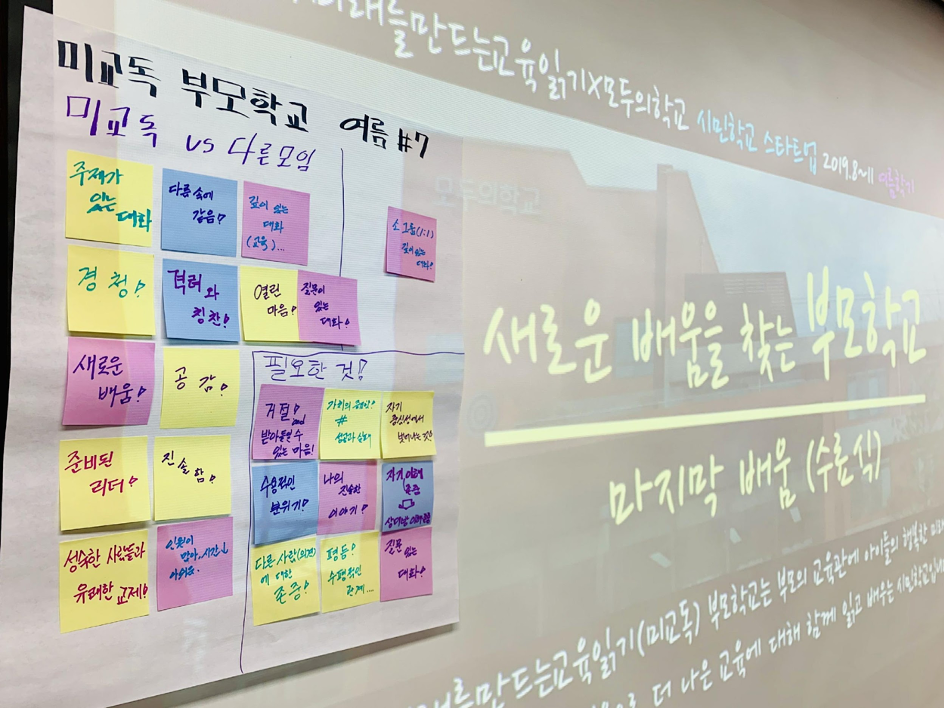 미교독 부모학교 여름 #7
미교독 vs 다른모임
주제가
있는
대화
다름 속에
같음?
깊이 있는
대화
(교육)...
소그룹(1:1)
깊이 있는
대화?
경청!
격려와
칭찬!
열린
마음!
질문이
있는
대화!
새로운
배움!
공감!
준비된
리더!
진솔함!
성숙한 사람들과
유쾌한 교제!
인원이
많아, 시간↓
아쉬움.
필요한 것!
거절! and
받아들일 수
있는 마음!
자기
중심성에서
벗어나는 것
수용적인
분위기!
나의
진솔한
이야기!
존중
다른 사람(의견)
에 대한
존중!
평등?
수평적인
관계...
질문 있는
대화?
미래를만드는교육읽기X모두의학교 시민학교 스타트업 2019.8~11 여름학기
모두의학교
새로운 배움을 찾는 부모학교
마지막 배움 (수료식)
만드는교육읽기(미교독) 부모학교는 부모의 교육관에 아이들의 행복한
으로 더 나은 교육에 대해 함께 읽고 배우는 시민학교입니다